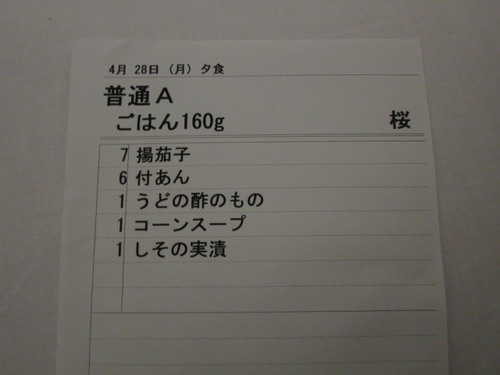 4月 28日 (月) 夕食
普通A
ごはん160g 桜
7 揚茄子
6 付あん
1 うどの酢のもの
1 コーンスープ
1 しその実漬